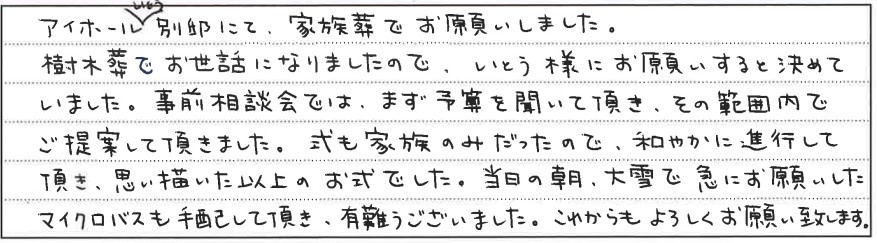 アイホールいとう別邸にて、家族葬でお願いしました。
樹木葬でお世話になりましたので、いとう様にお願いすると決めて
いました。事前相談会では、まず予算を聞いて頂き、その範囲内で
ご提案して頂きました。式も家族のみだったので、和やかに進行して
頂き、思い描いた以上のお式でした。当日の朝、大雪で急にお願いした
マイクロバスも手配して頂き、有難うございました。これからもよろしくお願い致します。